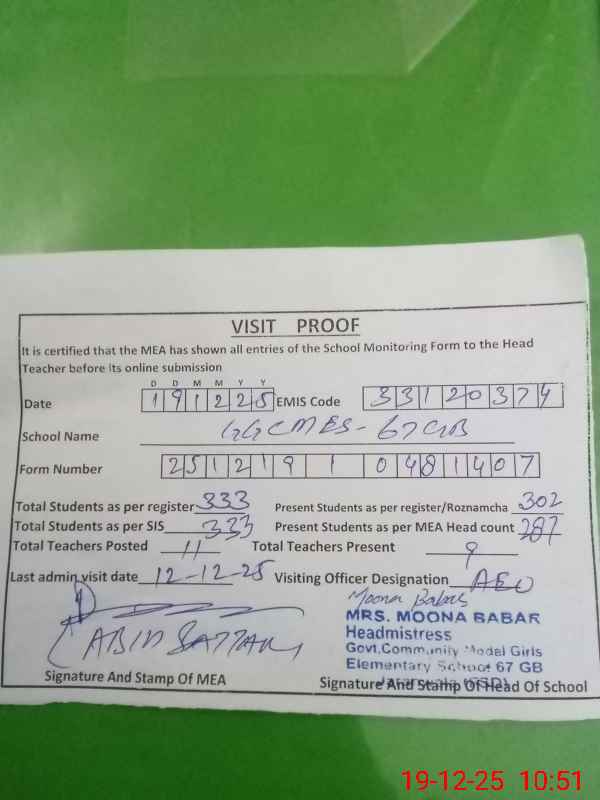 VISIT PROOF
It is certified that the MEA has shown all entries of the School Monitoring Form to the Head
Teacher before its online submission
D D M M Y Y
Date 191225 EMIS Code 33120374
School Name GGCMES - 67GB
Form Number 251219 1 0481407
Total Students as per register 333 Present Students as per register/Roznamcha 302
Total Students as per SIS 333 Present Students as per MEA Head count 287
Total Teachers Posted 11 Total Teachers Present 9
Last admin visit date 12-12-25 Visiting Officer Designation AEO
Moona Babar
MRS. MOONA BABAR
Headmistress
Govt.Community Model Girls
Elementary School 67 GB
ABID SATTAR
Signature And Stamp Of MEA Signature And Stamp Of Head Of School
19-12-25 10:51